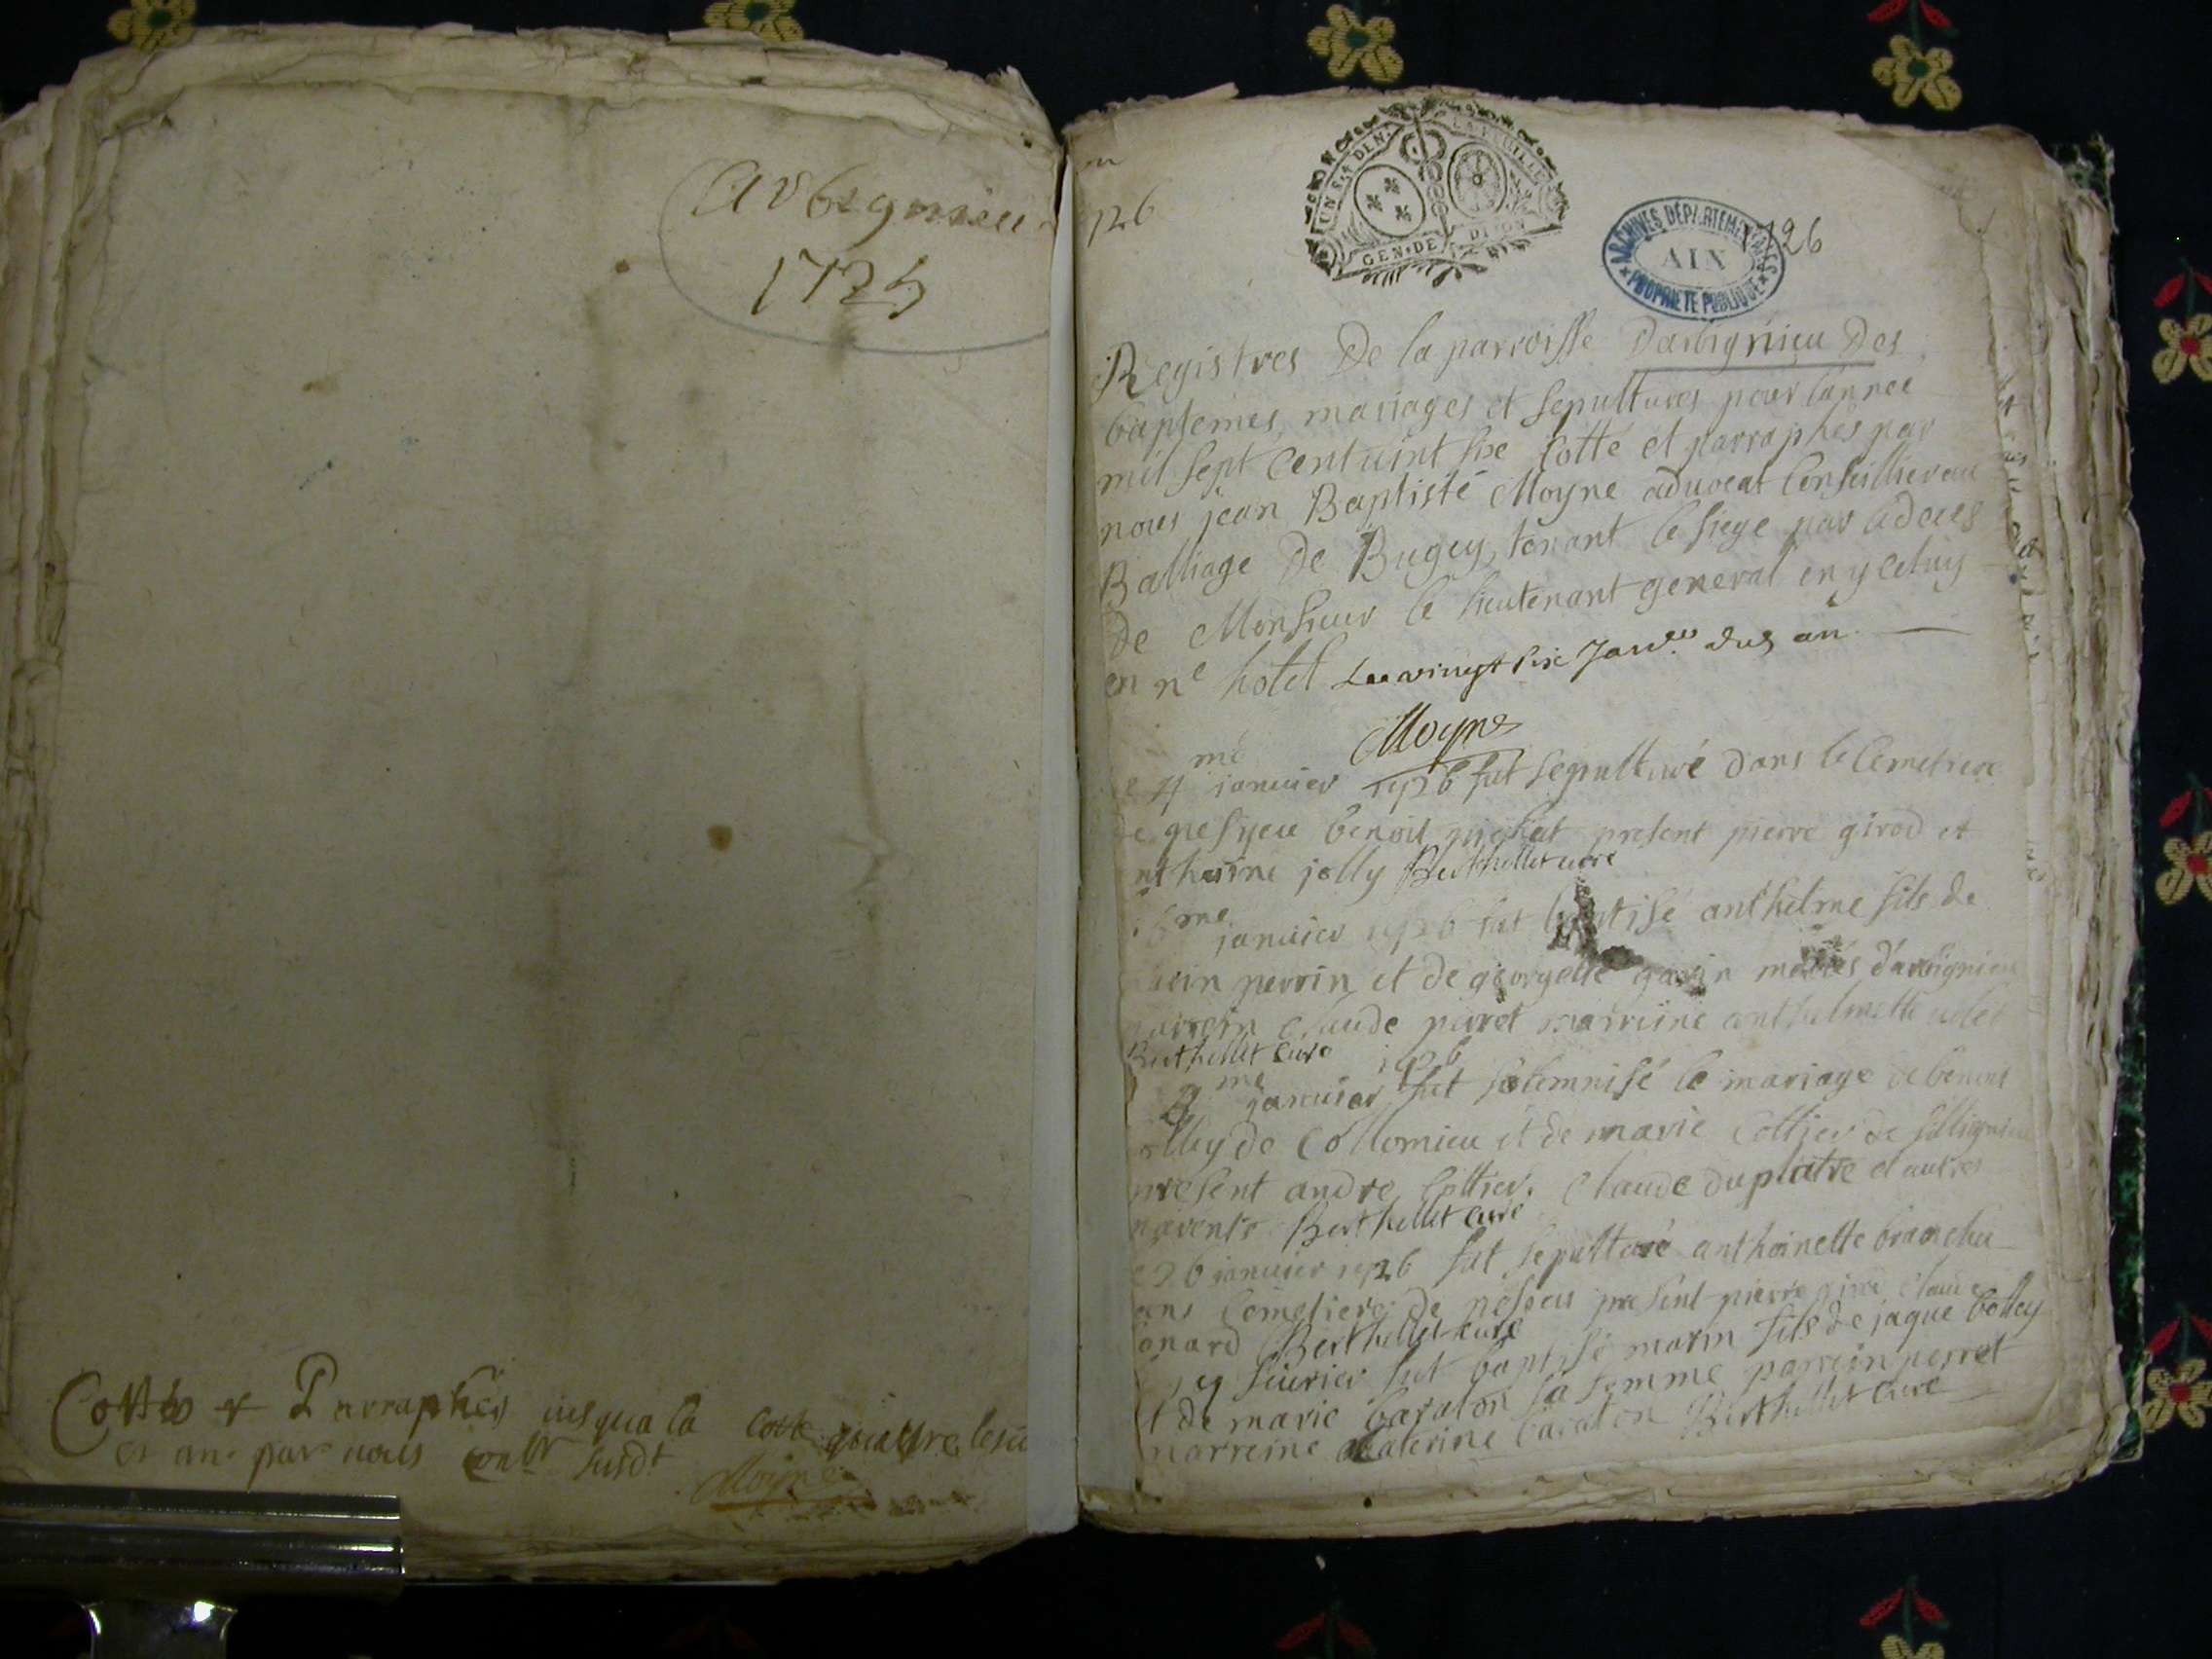 Arbignieu
1725
Cottés et Parraphés jusqua la cotte quattre
et an par nous conser susdt
Moyne
UN SOL DEN. LA FEUILLE
GEN. DE DIJON
ARCHIVES DÉPARTEMENTALES
AIN
PROPRIÉTÉ PUBLIQUE
1726
Registres De la parroisse Darbignieu Des
baptemes, mariages et sepultures pour lannee
mil sept cent vint six Cotte et parraphés par
nous jean Baptiste Moyne advocat conseillier au
Balliage De Bugey, tenant le siege par
De Monsieur le lieutenant general en y celuy
en ne hotel Le vingt six Janer dud an
Moyne
4me janvier 1726 fut sepulturé Dans le Cemetiere
benoit present pierre girod et
jolly Berthellet curé
6me janvier 1726 fut baptisé anthelme fils de
perrin et de georgette gavin mariés d'arbignieu
parrein claude perret marreine anthelmette
Berthellet Curé 1726
me janvier fut solemnisé le mariage de benoit
de Collomieu et de marie Cottier de
present andre Cottier, Claude duplatre et autres
parents Berthellet curé
26 janvier 1726 fut sepulturé anthoinette
Cemetiere de present pierre girod Claude
Berthellet curé
fevrier fut baptisé marin fils de jaque bolley
et de marie baraton sa femme parrein perret
marreine caterine baraton Berthellet curé